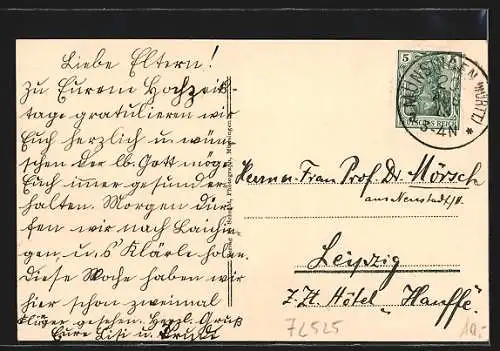 Liebe Eltern!
Zu Eurem Hochzeits-
tage gratulieren wir
Euch herzlich u. wün-
schen der lb. Gott möge
Euch immer gesund er-
halten. Morgen dür-
fen wir nach Laichin-
gen u. 's Klärle holen.
Diese Woche haben wir
hier schon zweimal
gesehen. Herzl. Gruß
Eure Lisi u.
5
DEUTSCHES REICH
MÜNSINGEN (WÜRTT.)
3-4N
Herrn u. Frau Prof. Dr. Mörsch
aus Neustadt a/H.
Leipzig
z. Zt. Hôtel „Hauffe“
72525
10.-